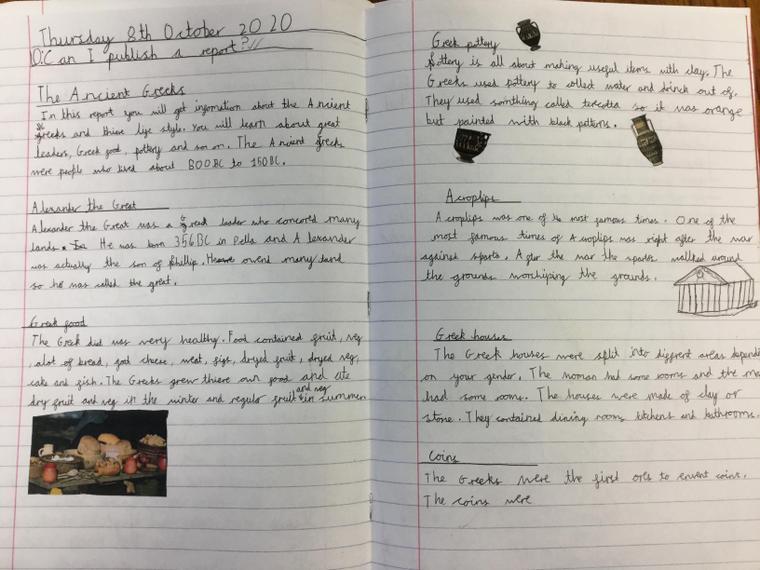 Thursday 8th October 2020
O:Can I publish a report?//
The Ancient Greeks
In this report you will get infomation about the Ancient
Greeks and thiere life style. You will learn about great
leaders, Greek food, pottery and so on. The Ancient Greeks
were people who lived about 800BC to 150BC.
Alexander the Great
Alexander the Great was a Greek leader who concored many
lands. He was born 356BC in Pella and Alexander
was actually the son of Phillip. He owend many land
so he was called the great.
Greek food
The Greek diet was very healthy. Food contained fruit, veg
, alot of bread, goat cheese, meat, figs, dryed fruit, dryed veg,
cake and fish. The Greeks grew thiere own food and ate
dry fruit and veg in the winter and regular fruit and veg in summer
Greek pottery
Pottery is all about making useful items with clay. The
Greeks used pottery to collect water and drinch out of.
They used somthing called terecotta so it was orange
but painted with black patterns.
Acroplips
Acroplips was one of the most famous times. One of the
most famous times of Acroplips was right after the war
against sparta. After the war the spartas walked around
the grounds worshiping the grounds.
Greek houses
The Greek houses were split into different areas dependi
on your gender. The woman had some rooms and the ma
had some rooms. The houses were made of clay or
stone. They contained dining rooms kitchens and bathrooms.
Coins
The Greeks were the first ones to envent coins.
The coins were